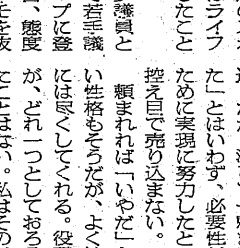 た」とはいわず、必要性
ために実現に努力したと
控え目で売り込まない。
頼まれれば「いやだ」
い性格もそうだが、よく
には尽くしてくれる。役
が、どれ一つとしておろ
たことはない。私はその
ライフ
したこと
議員と
若手議
プに登
、態度